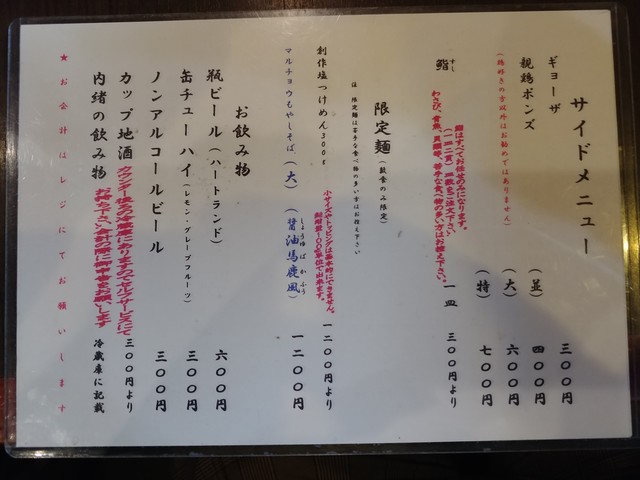 サイドメニュー
ギョーザ 三〇〇円
親鶏ポンズ (並) 四〇〇円
(鶏好きの方以外はお勧めではありません) (大) 六〇〇円
(特) 七〇〇円
鮨 すし 一皿 三〇〇円より
鮨はすべてお任せのみになります。
(一皿二貫) 二皿もご注文下さい
わさび、青魚、貝類等、苦手な食べ物の多い方はお控え下さい。
限定麺(数食のみ限定)
注 限定麺は苦手な食べ物の多い方はお控え下さい
創作塩つけめん300g 一二〇〇円より
小サイズやトッピングは基本的にできません。
麺増量100g単位で出来ます。
マルチョウもやしそば(大)(醤油馬鹿風) しょうゆばかふう 一二〇〇円
お飲み物
瓶ビール(ハートランド) 六〇〇円
缶チューハイ(レモン・グレープフルーツ) 三〇〇円
ノンアルコールビール 三〇〇円
カップ地酒 三〇〇円より
カウンター後ろの冷蔵庫にありますのでセルフサービスにて
お持ち下さい、会計の際に御申告をお願いします
内緒の飲み物 冷蔵庫に記載
★お会計はレジにてお願いします